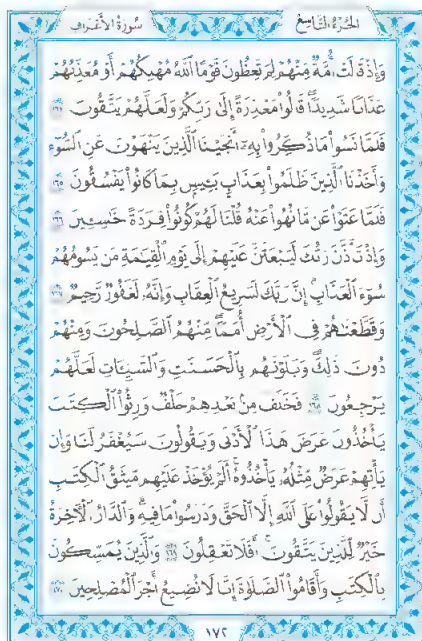 الجزء التاسع سورة الأعراف
وَإِذْ قَالَتْ أُمَّةٌ مِّنْهُمْ لِمَ تَعِظُونَ قَوْمًا اللَّهُ مُهْلِكُهُمْ أَوْ مُعَذِّبُهُمْ
عَذَابًا شَدِيدًا قَالُوا مَعْذِرَةً إِلَىٰ رَبِّكُمْ وَلَعَلَّهُمْ يَتَّقُونَ ١٦٤
فَلَمَّا نَسُوا مَا ذُكِّرُوا بِهِ أَنجَيْنَا الَّذِينَ يَنْهَوْنَ عَنِ السُّوءِ
وَأَخَذْنَا الَّذِينَ ظَلَمُوا بِعَذَابٍ بَئِيسٍ بِمَا كَانُوا يَفْسُقُونَ ١٦٥
فَلَمَّا عَتَوْا عَن مَّا نُهُوا عَنْهُ قُلْنَا لَهُمْ كُونُوا قِرَدَةً خَاسِئِينَ ١٦٦
وَإِذْ تَأَذَّنَ رَبُّكَ لَيَبْعَثَنَّ عَلَيْهِمْ إِلَىٰ يَوْمِ الْقِيَامَةِ مَن يَسُومُهُمْ
سُوءَ الْعَذَابِ إِنَّ رَبَّكَ لَسَرِيعُ الْعِقَابِ وَإِنَّهُ لَغَفُورٌ رَّحِيمٌ ١٦٧
وَقَطَّعْنَاهُمْ فِي الْأَرْضِ أُمَمًا مِّنْهُمُ الصَّالِحُونَ وَمِنْهُمْ
دُونَ ذَٰلِكَ وَبَلَوْنَاهُم بِالْحَسَنَاتِ وَالسَّيِّئَاتِ لَعَلَّهُمْ
يَرْجِعُونَ ١٦٨ فَخَلَفَ مِن بَعْدِهِمْ خَلْفٌ وَرِثُوا الْكِتَابَ
يَأْخُذُونَ عَرَضَ هَٰذَا الْأَدْنَىٰ وَيَقُولُونَ سَيُغْفَرُ لَنَا وَإِن
يَأْتِهِمْ عَرَضٌ مِّثْلُهُ يَأْخُذُوهُ أَلَمْ يُؤْخَذْ عَلَيْهِم مِّيثَاقُ الْكِتَابِ
أَن لَّا يَقُولُوا عَلَى اللَّهِ إِلَّا الْحَقَّ وَدَرَسُوا مَا فِيهِ وَالدَّارُ الْآخِرَةُ
خَيْرٌ لِّلَّذِينَ يَتَّقُونَ أَفَلَا تَعْقِلُونَ ١٦٩ وَالَّذِينَ يُمَسِّكُونَ
بِالْكِتَابِ وَأَقَامُوا الصَّلَاةَ إِنَّا لَا نُضِيعُ أَجْرَ الْمُصْلِحِينَ ١٧٠
١٧٢